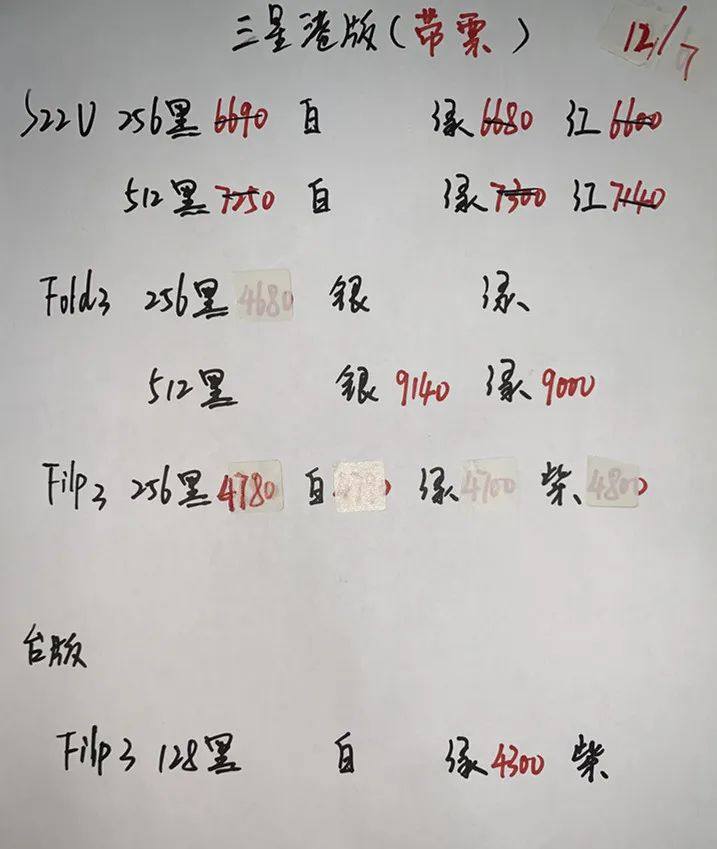 三星港版(带票) 12/7
S22U 256黑6690 白 绿6680 红6600
512黑7250 白 绿7300 红7140
Fold3 256黑4680 银 绿
512黑 银9140 绿9000
Filp3 256黑4780 白 绿4700 紫4800
台版
Filp3 128黑 白 绿4300 紫